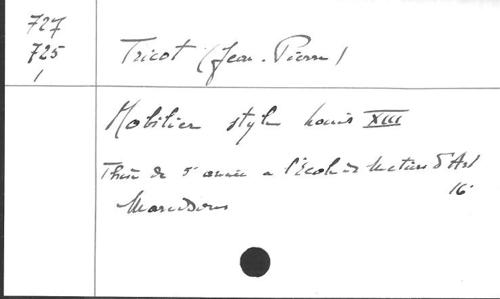 727
725
1
Tricot (Jean-Pierre)
Mobilier style Louis XIII
Thèse de 5e année à l'école des Métiers d'Art
16.